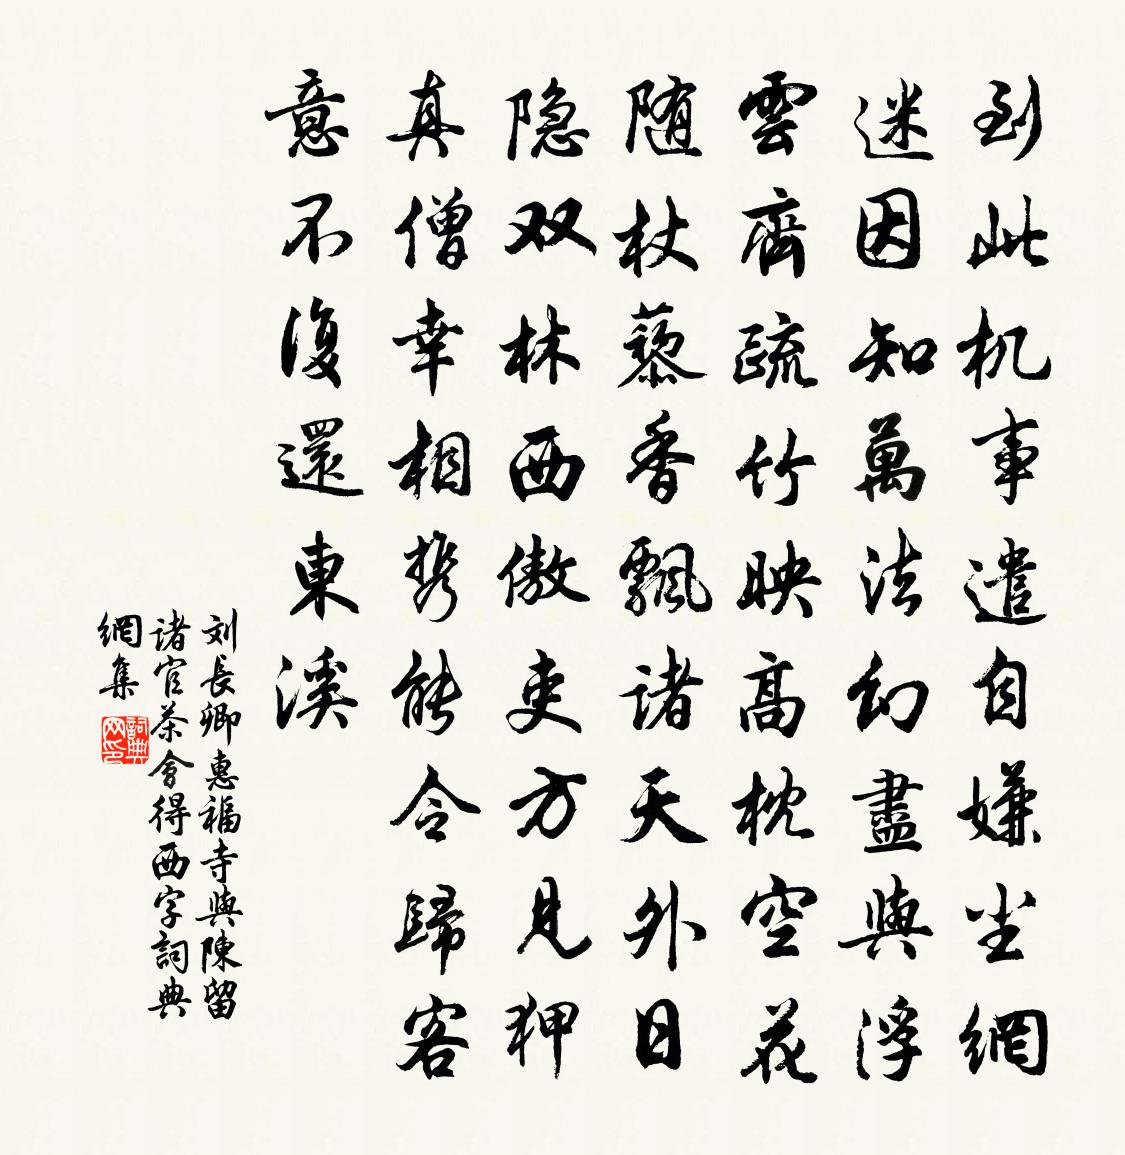 到此机事遣自嫌尘網
迷因知萬法幻盡與浮
雲齊疏竹映高枕空花
随杖藜香飄诸天外日
隐双林西傲吏方见狎
真僧幸相携能令歸客
意不復還東溪
刘長卿惠福寺與陳留
诸官茶會得西字詞典
網集
詞典
网印